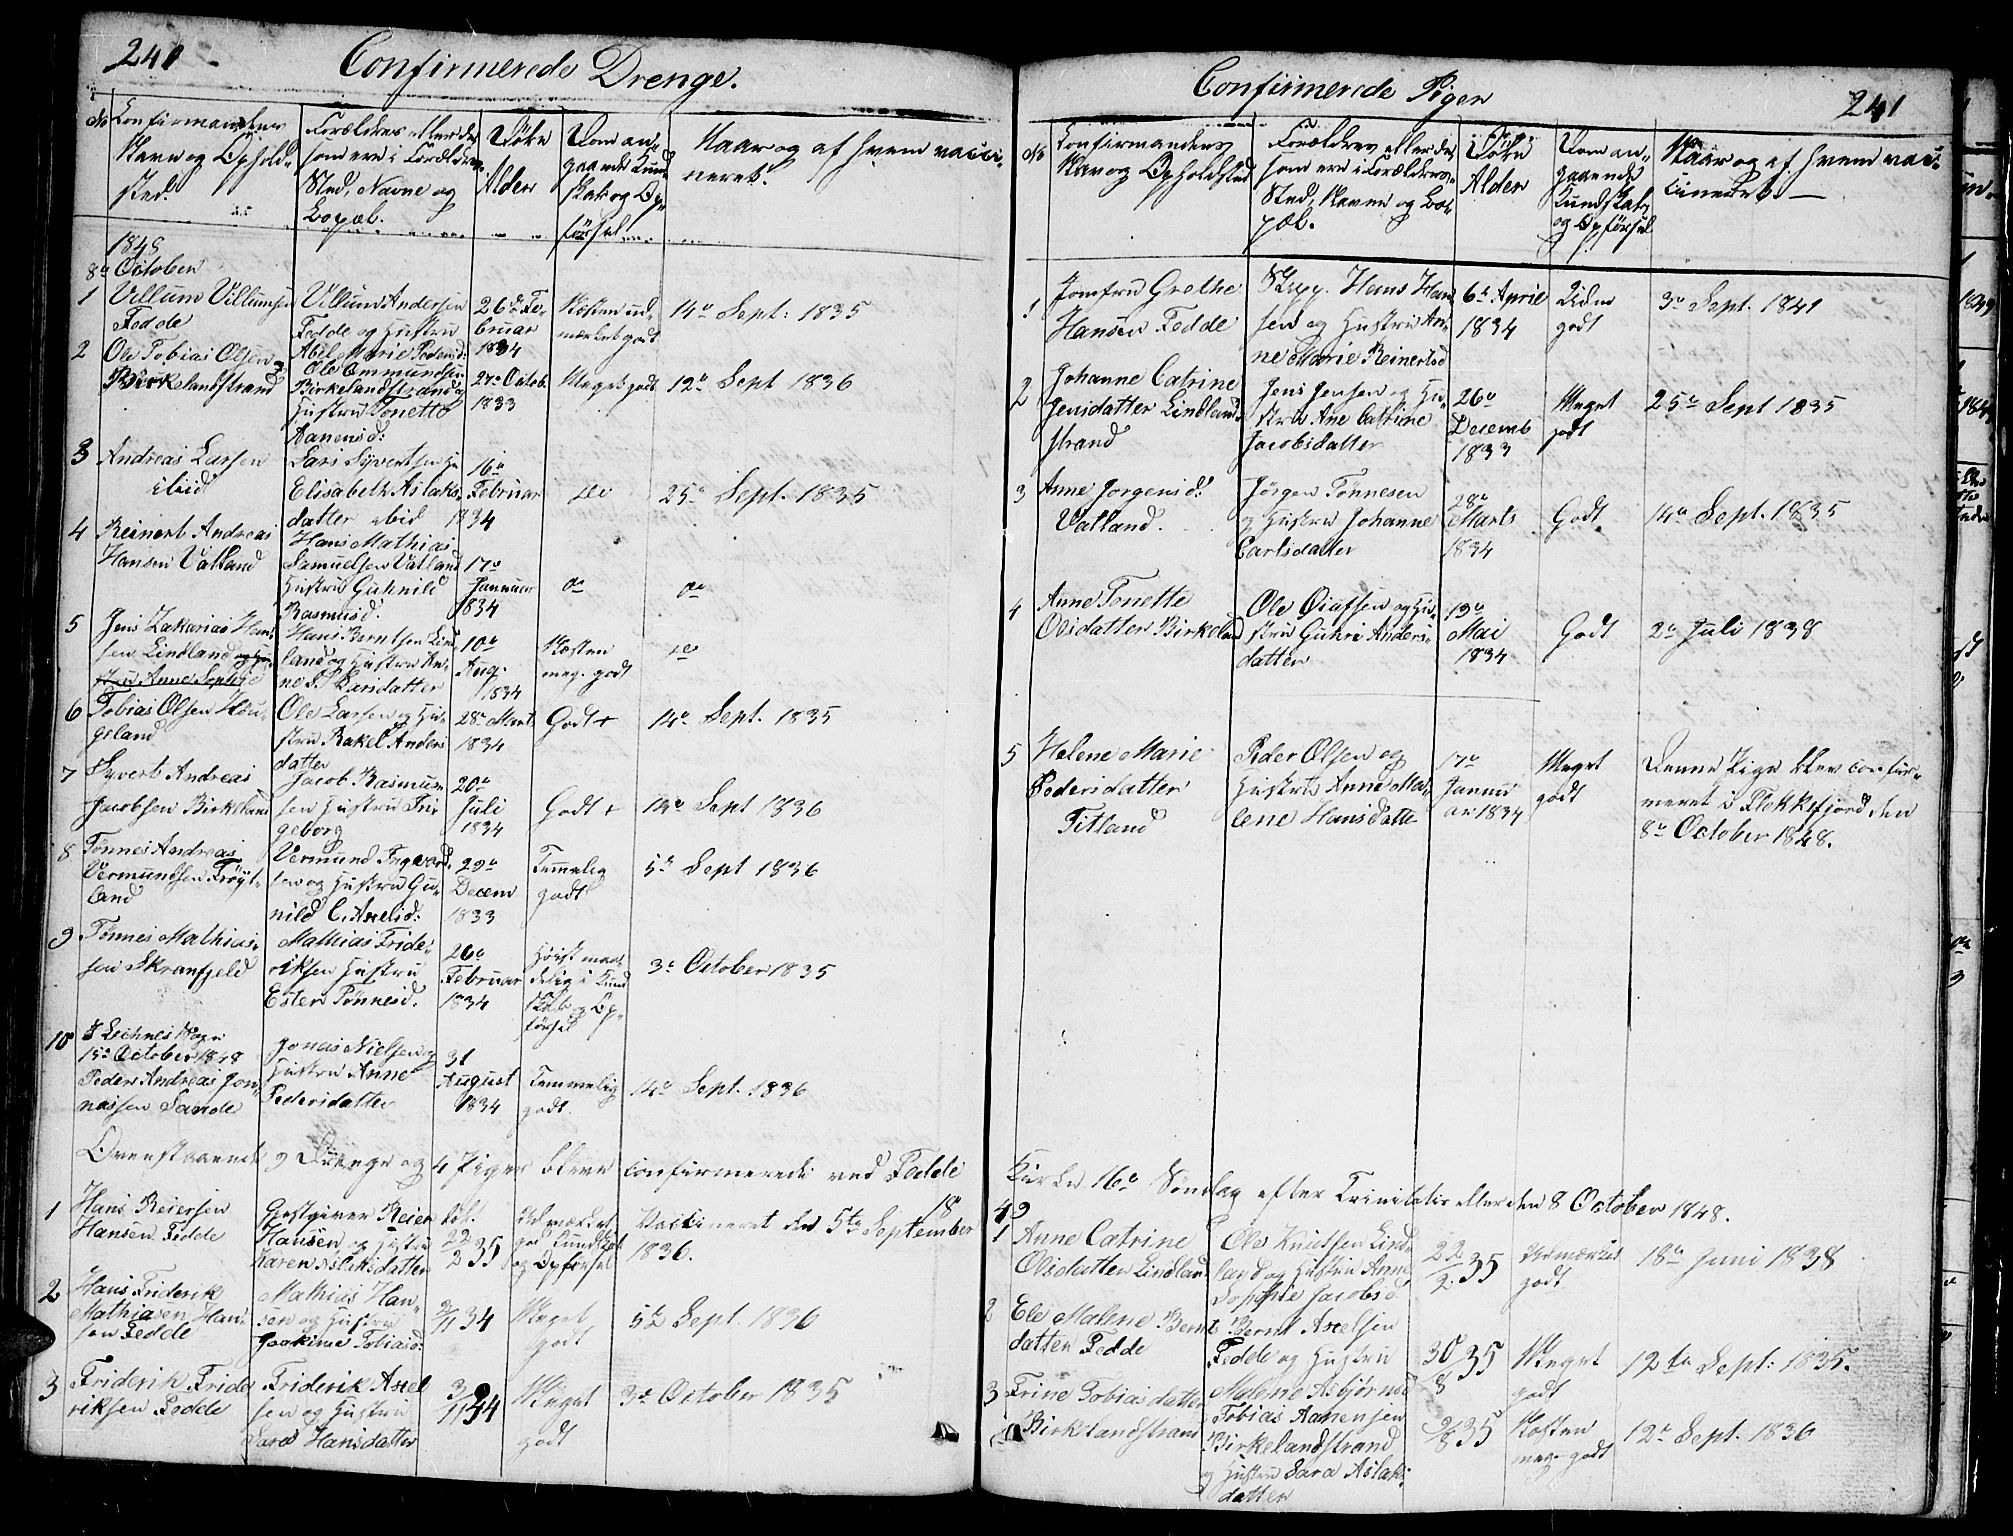 240
Confirmerede Drenge.
No
Confirmandens
Navn og Ophold-
sted.
Forældres eller des
som ere i Forældres
Sted, Navne og
Bopæl.
Døbt
Alder
Dom an-
gaaende Kund
skab og Op-
førsel
Naar og af hvem vacci-
neret.
1848
8de October
1 Villum Villumsen
Fedde
Villum Andersen
Fedde og Hustru
Abel Marie Pedersd:
26de Fe-
bruar
1834
Næsten ud-
mærket godt
14de Sept: 1835
2 Ole Tobias Olsen
Birkelandstrand
Ole Ommundsen
Birkelandstrand og
Hustru Tonette
Aanensd:
27de Octob
1833
Meget godt
12te Sept 1836
3 Andreas Larsen
ibid
Lars Syvertsen
Elisabeth Aslaks-
datter ibid
16de
Februar
1834
do
25de Sept. 1835
4 Reinert Andreas
Hansen Vatland
Hans Mathias
Samuelsen Vatland
Hustru Guhnild
Rasmusd:
17de
Januar
1834
do
do
5 Jens Zakarias Han-
sen Lindland og Hu-
stru Anne Sophie
Hans Berntsen Lind-
land og Hustru An-
ne S. Larsdatter
10de
Aug.
1834
Næsten
meg. godt
do
6 Tobias Olsen Hau-
geland
Ole Larsen og Hu-
stru Rakel Anders
datter
28de Marts
1834
Godt +
14de Sept. 1835
7 Syvert Andreas
Jacobsen Birkeland
Jacob Rasmus-
sen Hustru In-
geborg
20de
Juli
1834
Godt +
12te Sept 1836
8 Tønnes Andreas
Vermundsen Frøyt-
land
Vermund Ingvard-
sen og Hustru Gu-
nild C. Axelsd:
29de
Decem
1833
Temmelig
godt
5te Sept 1836
9 Tønnes Mathias-
sen Skranfjeld
Mathias Fride-
riksen Hustru
Ester Tønnesd.
26de
Februar
1834
Høist maa-
delig i Kund
skab og Op-
førsel
3de October 1835
10
15de October 1848
Peder Andreas Jon-
nassen Sande
Jonas Nielsen og
Hustru Anne
Pedersdatter
31
August
1834
Temmelig
godt.
14de Sept. 1836
Ovenstaaende 9 Drenge og 4 Piger bleve confirmerede ved Fedde
18
1 Hans Reiersen
Hansen Fedde
Gestgiver Reier
Hansen og Hustru
Karen Aslaksdatter
Døbt.
22/2 35
Udmærket
god Kundskab
og Opførsel
Vaccineret den 5te September
1836.
2 Hans Friderik
Mathiasen Han-
sen Fedde
Mathias Han-
sen og Hustru
Joakime Tobiasd:
2/11 34
Meget
godt
5te Sept. 1836
3 Friderik Fride
riksen Fedde
Friderik Axel
sen og Hustru
Sara Hansdatter
3/11 34
Meget
godt
3de October 1835
Confirmerede Piger
241
No
Confirmandens
Navn og Opholdsted
Forældres eller des
som ere i Forældres
Sted, Navne og Bo-
pæl.
Døbt
Alder
Dom an-
gaaende
Kundskab
og Opførsel
Naar og af hvem vac-
cineret
1 Jomfru Grethe
Hansen Fedde
Skipp. Hans Han
sen og Hustru An-
ne Marie Reinertsd
6te April
1834
Uden
godt
3de Sept. 1841
2 Johanne Catrine
Jensdatter Lindland-
strand
Jens Jensen og Hu-
stru Ane Catrine
Jacobsdatter
26de
Decemb
1833
Meget
godt
25de Sept 1835
3 Anne Jorgensd:
Vatland.
Jörgen Tönnesen
og Hustru Johanne
Carlsdatter
28de
Marts
1834
Godt
14de Sept. 1835
4 Anne Tonette
Olsdatter Birkeland
Ole Olafsen og Hu-
stru Guhri Anders-
datter
19de
Mai
1834
Godt
2de Juli 1838
5 Helene Marie
Pedersdatter
Titland
Peder Olsen og
Hustru Anne Ma-
lene Hansdatte
17de
Janu
ar 1834
Meget
godt
Denne Pige blev confir-
meret i Flekkefjord den
8de October 1848.
Kirke 16de Søndag efter Trinitatis eller den 8 October 1848.
49
1 Anne Catrine
Olsdatter Lindland
Ole Knutsen Lind-
land og Hustru Anne
Sophie Jacobsd
22/2 35
Udmærket
godt
18de Juni 1838
2 Ele Malene Bernt
datter Fedde
Bernt Axelsen
Fedde og Hustru
Malene Asbjørnsd
30/8 35
Meget
godt
12te Sept: 1835.
3 Trine Tobiasdatter
Birkelandstrand
Tobias Aanensen
Birkelandstrand
og Hustru Sara Aslaks-
datter
2/8 35
Næsten
meg. godt
12te Sept. 1836